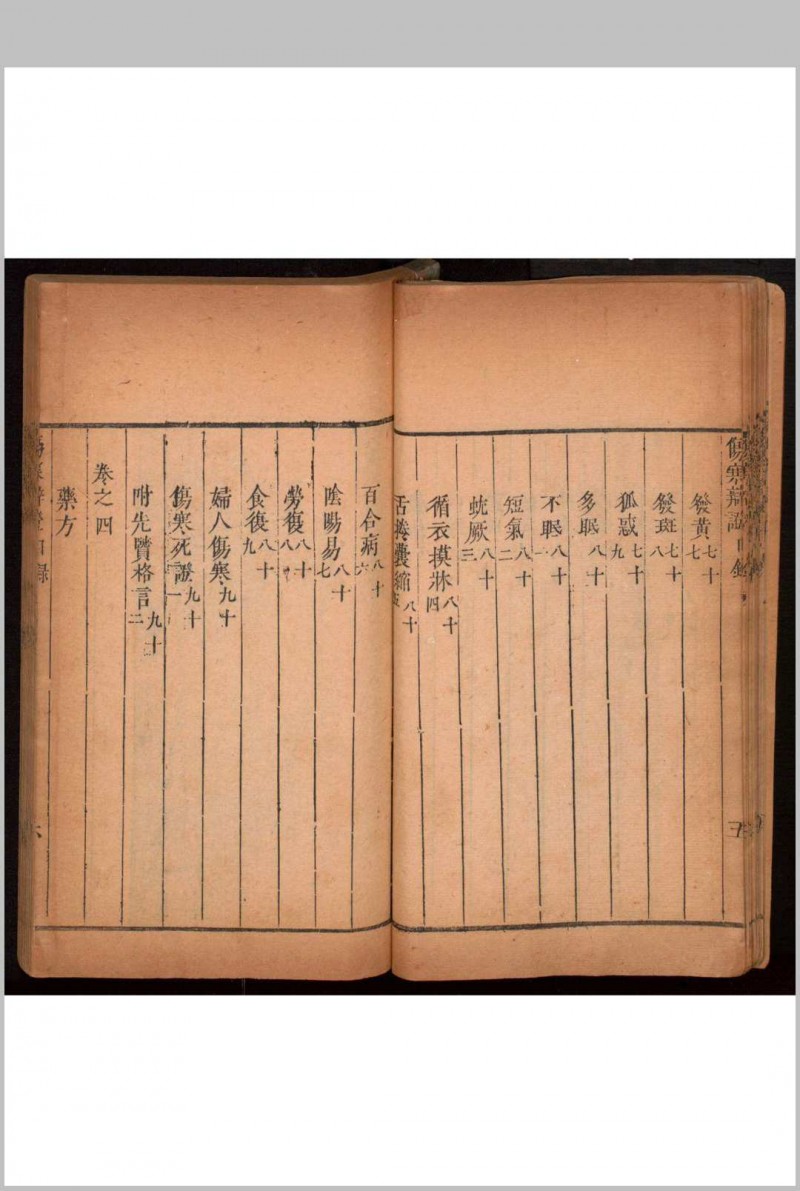 傷寒辯證目錄
五
發黃七十七
發斑七十八
狐惑七十九
多眠八十
不眠八十一
短氣八十二
蚘厥八十三
循衣摸牀八十四
舌捲囊縮八十五
百合病八十六
陰陽易八十七
勞復八十八
食復八十九
婦人傷寒九十
傷寒死證九十一
附先賢格言九十二
卷之四
藥方
傷寒辯證目錄
六